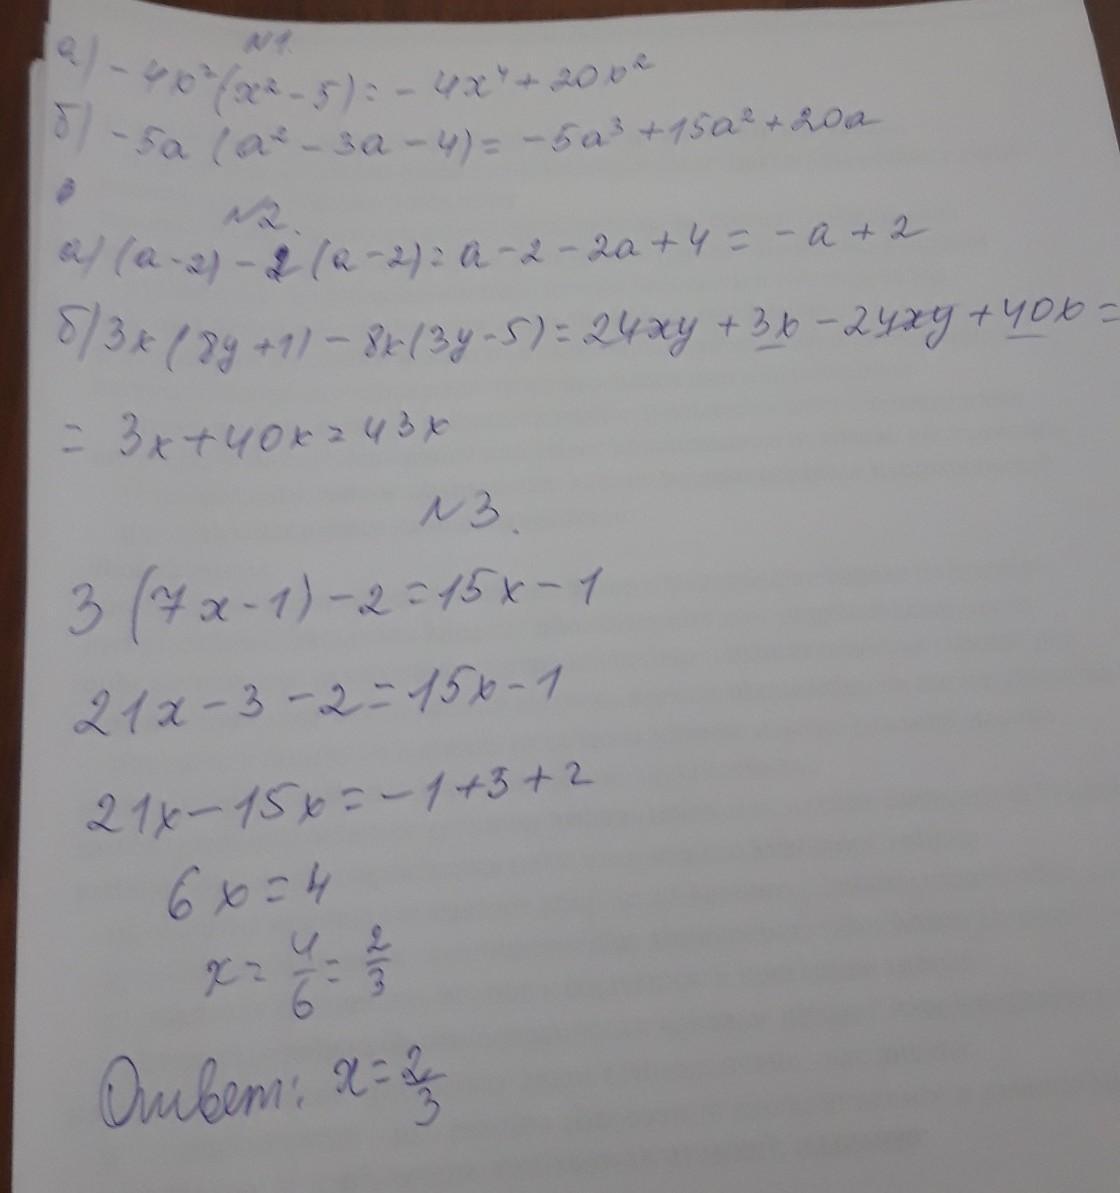 N1.
а) -4x²(x²-5)=-4x⁴+20x²
б) -5a(a²-3a-4)=-5a³+15a²+20a
N2.
а) (a-2)-2(a-2)=a-2-2a+4=-a+2
б) 3x(8y+1)-8x(3y-5)=24xy+3x-24xy+40x=
=3x+40x=43x
N3.
3(7x-1)-2=15x-1
21x-3-2=15x-1
21x-15x=-1+3+2
6x=4
x=4/6=2/3
Ответ: x=2/3